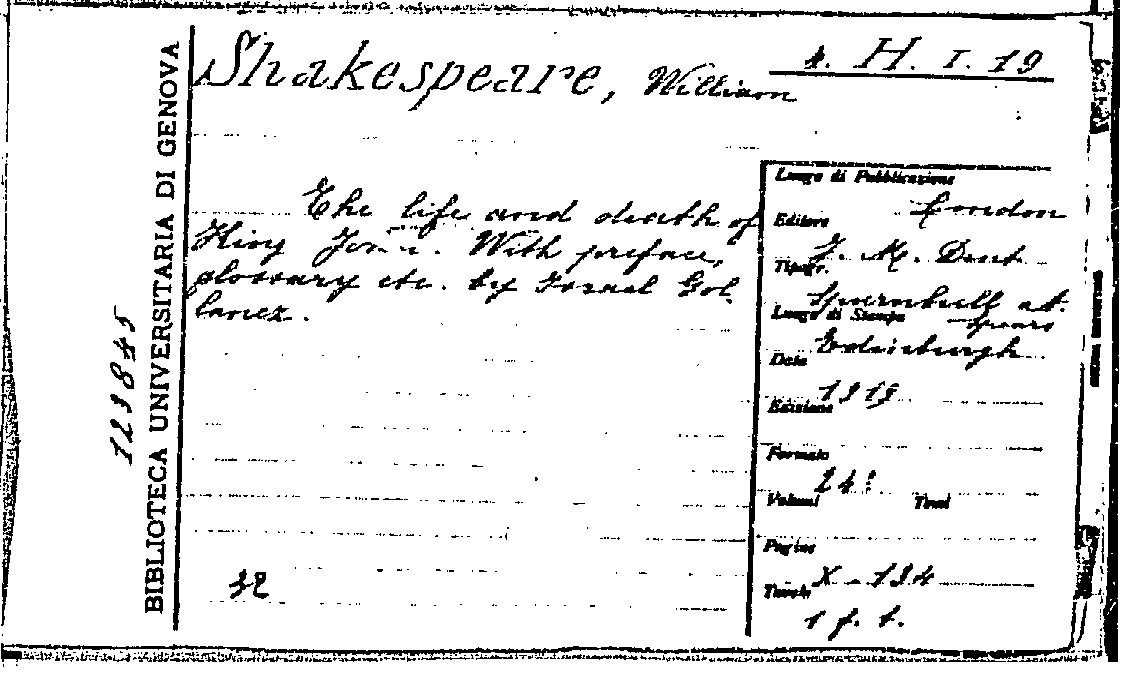 Shakespeare, William
4. H. I. 19
The life and death of
King John. With preface,
glossary etc. by Israel Gol
lancz.
32
BIBLIOTECA UNIVERSITARIA DI GENOVA
123845
Luogo di Pubblicazione
London
Editore
J. M. Dent
Tipogr.
Turnbull at.
Spears
Luogo di Stampa
Edinburgh
Data
1919
Edizione
Formato
24°
Volumi Tomi
Pagine
X - 134
Tavole
1 f. t.